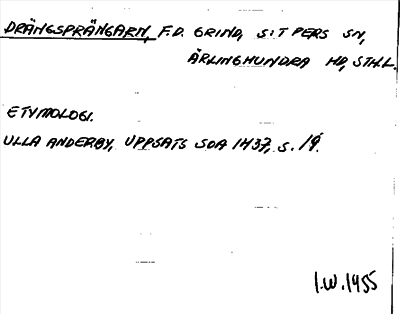 DRÄNGSPRÄNGARN, F.D. GRIND, S:T PERS SN,
ÄRLINGHUNDRA HD, STHLL.
ETYMOLOGI.
ULLA ANDERBY, UPPSATS SOA 1437, S. 19.
I.W. 1955